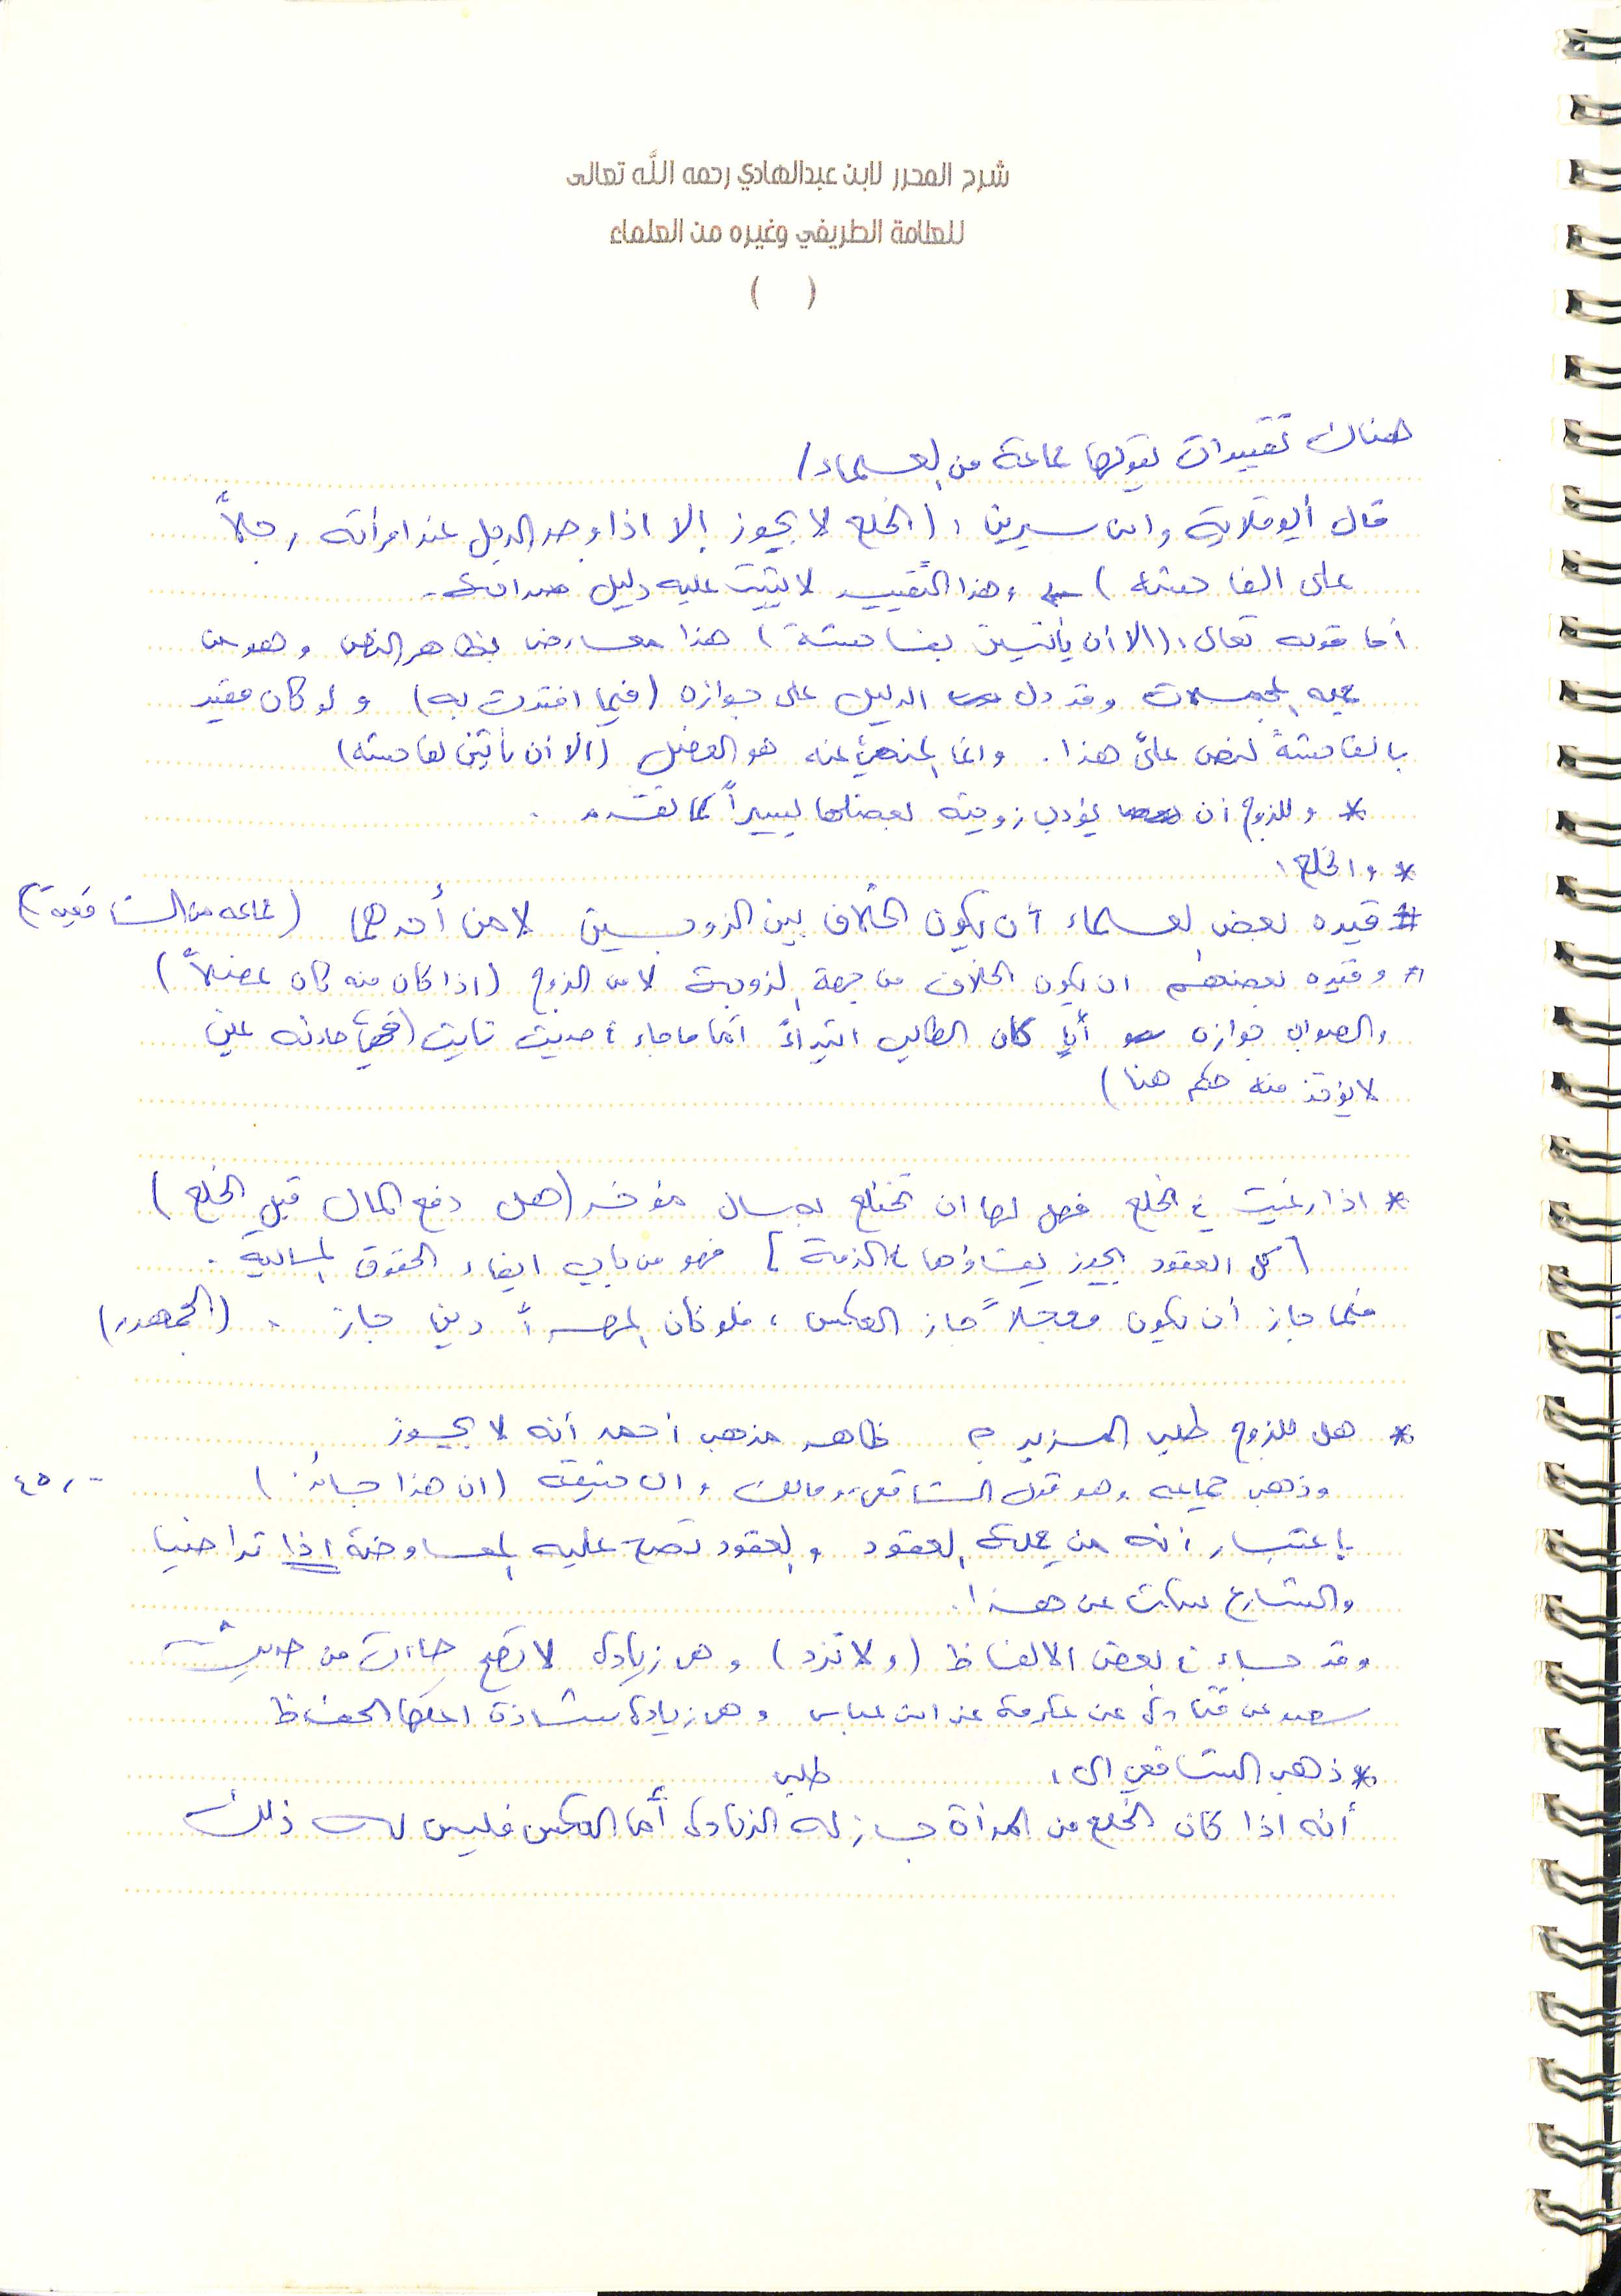 شرح المحرر لابن عبدالهادي رحمه الله تعالى
للعلامة الطريفي وغيره من العلماء
( )
هناك تقييدات يقولها جماعة من العلماء /
قال أبو قلابة وابن سيرين : ( الخلع لا يجوز إلا اذا وجد الرجل عند امرأته رجلاً
على الفاحشة ) وهذا التقييد لا يثبت عليه دليل
أما قوله تعالى : ( الا أن يأتين بفاحشة ) هذا معارض بظاهر النص وهو من
وقد دل الدليل على جوازه ( فيما افتدت به ) ولو كان مقيد
بالفاحشة لنص على هذا . وانما المنهي عنه هو العضل ( الا أن يأتين بفاحشة )
* وللزوج أن يؤدب زوجته بعضلها يسيراً كما تقدم .
* والخلع :
# قيده بعض العلماء أن يكون الخلاف بين الزوجين لا من أحدهما ( جماعه من الشافعية )
# وقيده بعضهم ان يكون الخلاف من جهة الزوجة لا من الزوج ( اذا كان منه كان عضلاً )
والصواب جوازه أياً كان الطالب ابتداءً أما ما جاء في حديث ثابت ( فهي حادثه عين
لا يؤخذ منه حكم هنا )
* اذا رغبت في الخلع فهل لها ان تختلع بمال مؤخر ( هل دفع المال قبل الخلع )
[ كل العقود يجوز بقاؤها في الذمة ] فهو من باب ايفاء الحقوق المالية .
فلما جاز أن يكون معجلاً جاز العكس ، فلو كان المهر ديناً جاز . ( الجمهور )
* هل للزوج طلب المزيد ؟ ظاهر مذهب أحمد أنه لا يجوز
وذهب جماعه وهو قول الشافعي ومالك وابي حنيفة ( ان هذا جائز ) ٤٥
باعتبار أنه من جملة العقود والعقود تصح عليه المعاوضة اذا تراضيا
والشارع سكت عن هذا .
وقد جاء في بعض الالفاظ ( ولا تزد ) وهي زيادة لا تصح جاءت من حديث
سعيد عن قتادة عن عكرمة عن ابن عباس وهي زيادة شاذة اعلها الحفاظ
* ذهب الشافعي الى :
أنه اذا كان طلب الخلع من المرأة جاز له الزيادة أما العكس فليس له ذلك